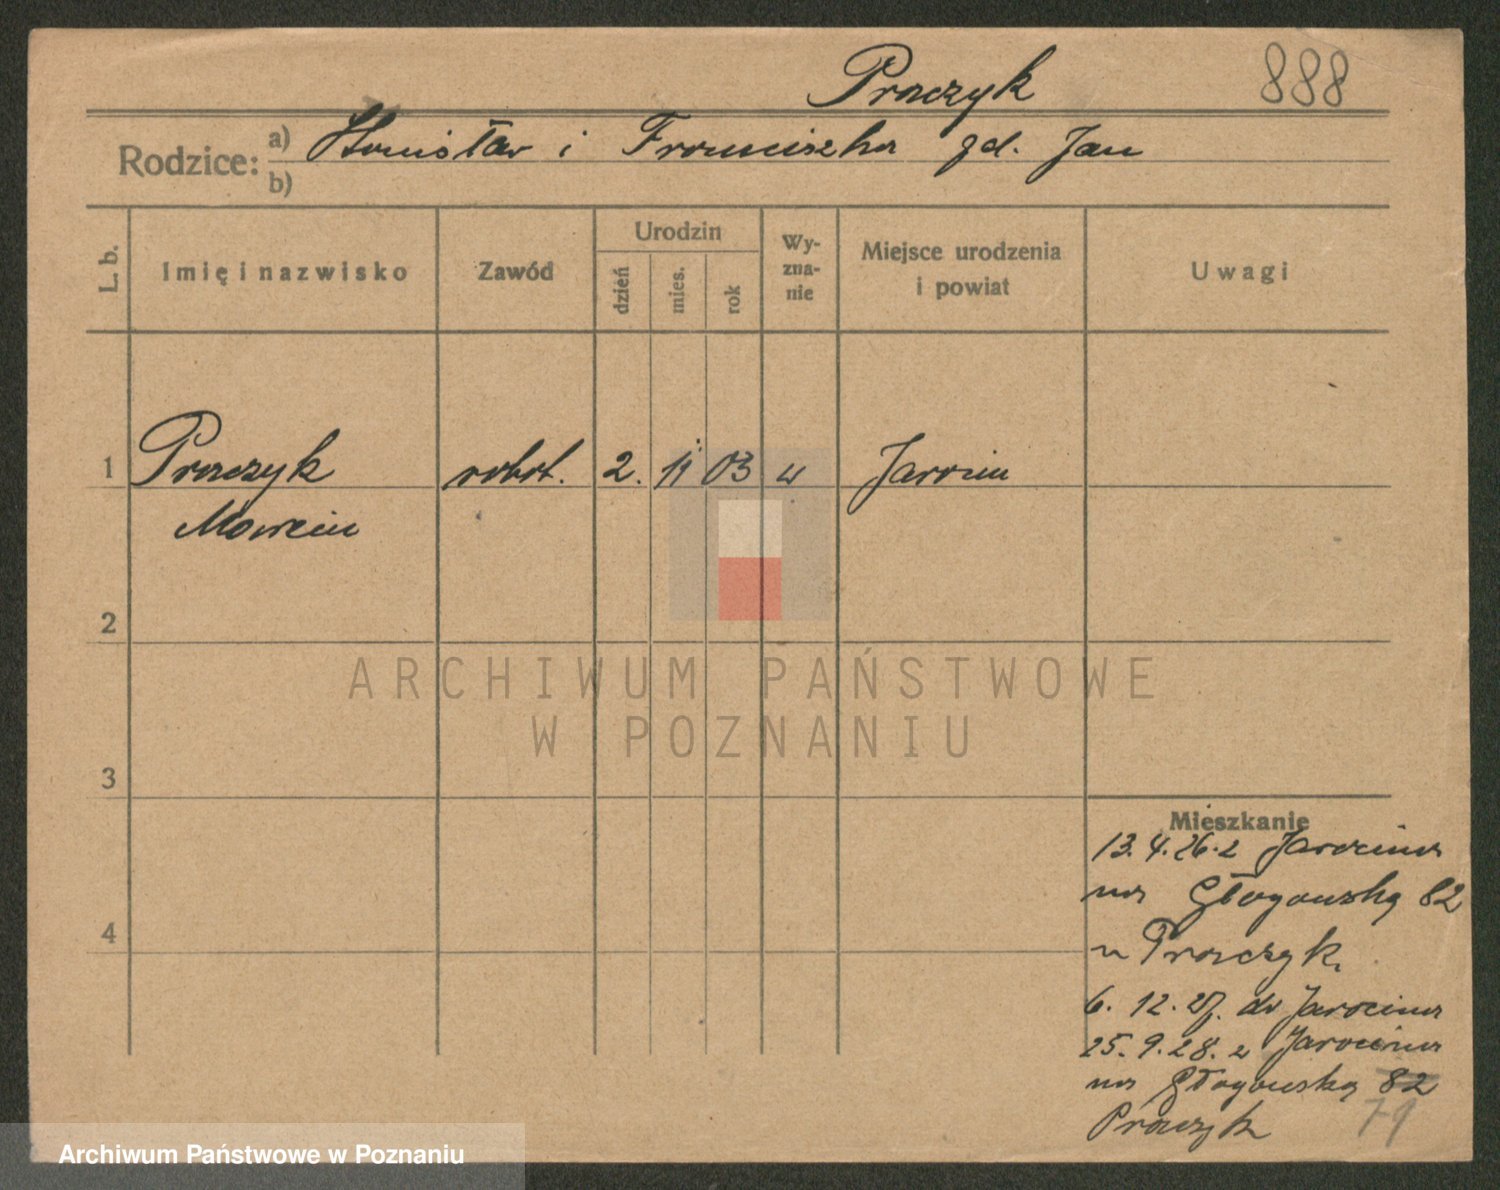 Praczyk 888
Rodzice: a) Stanisław i Franciszka zd. Jan
b)
L. b. Imię i nazwisko Zawód Urodzin dzień mies. rok Wy-zna-nie Miejsce urodzenia i powiat Uwagi
1 Praczyk robot. 2. 11 03 Jarocin
Marcin
2
ARCHIWUM PAŃSTWOWE
W POZNANIU
3
Mieszkanie
13.4.26. z Jarocina
na Głogowską 82
4
u Praczyk.
6. 12. 27. do Jarocina
25. 9. 28. z Jarocina
na Głogowską 82
79
Praczyk
Archiwum Państwowe w Poznaniu